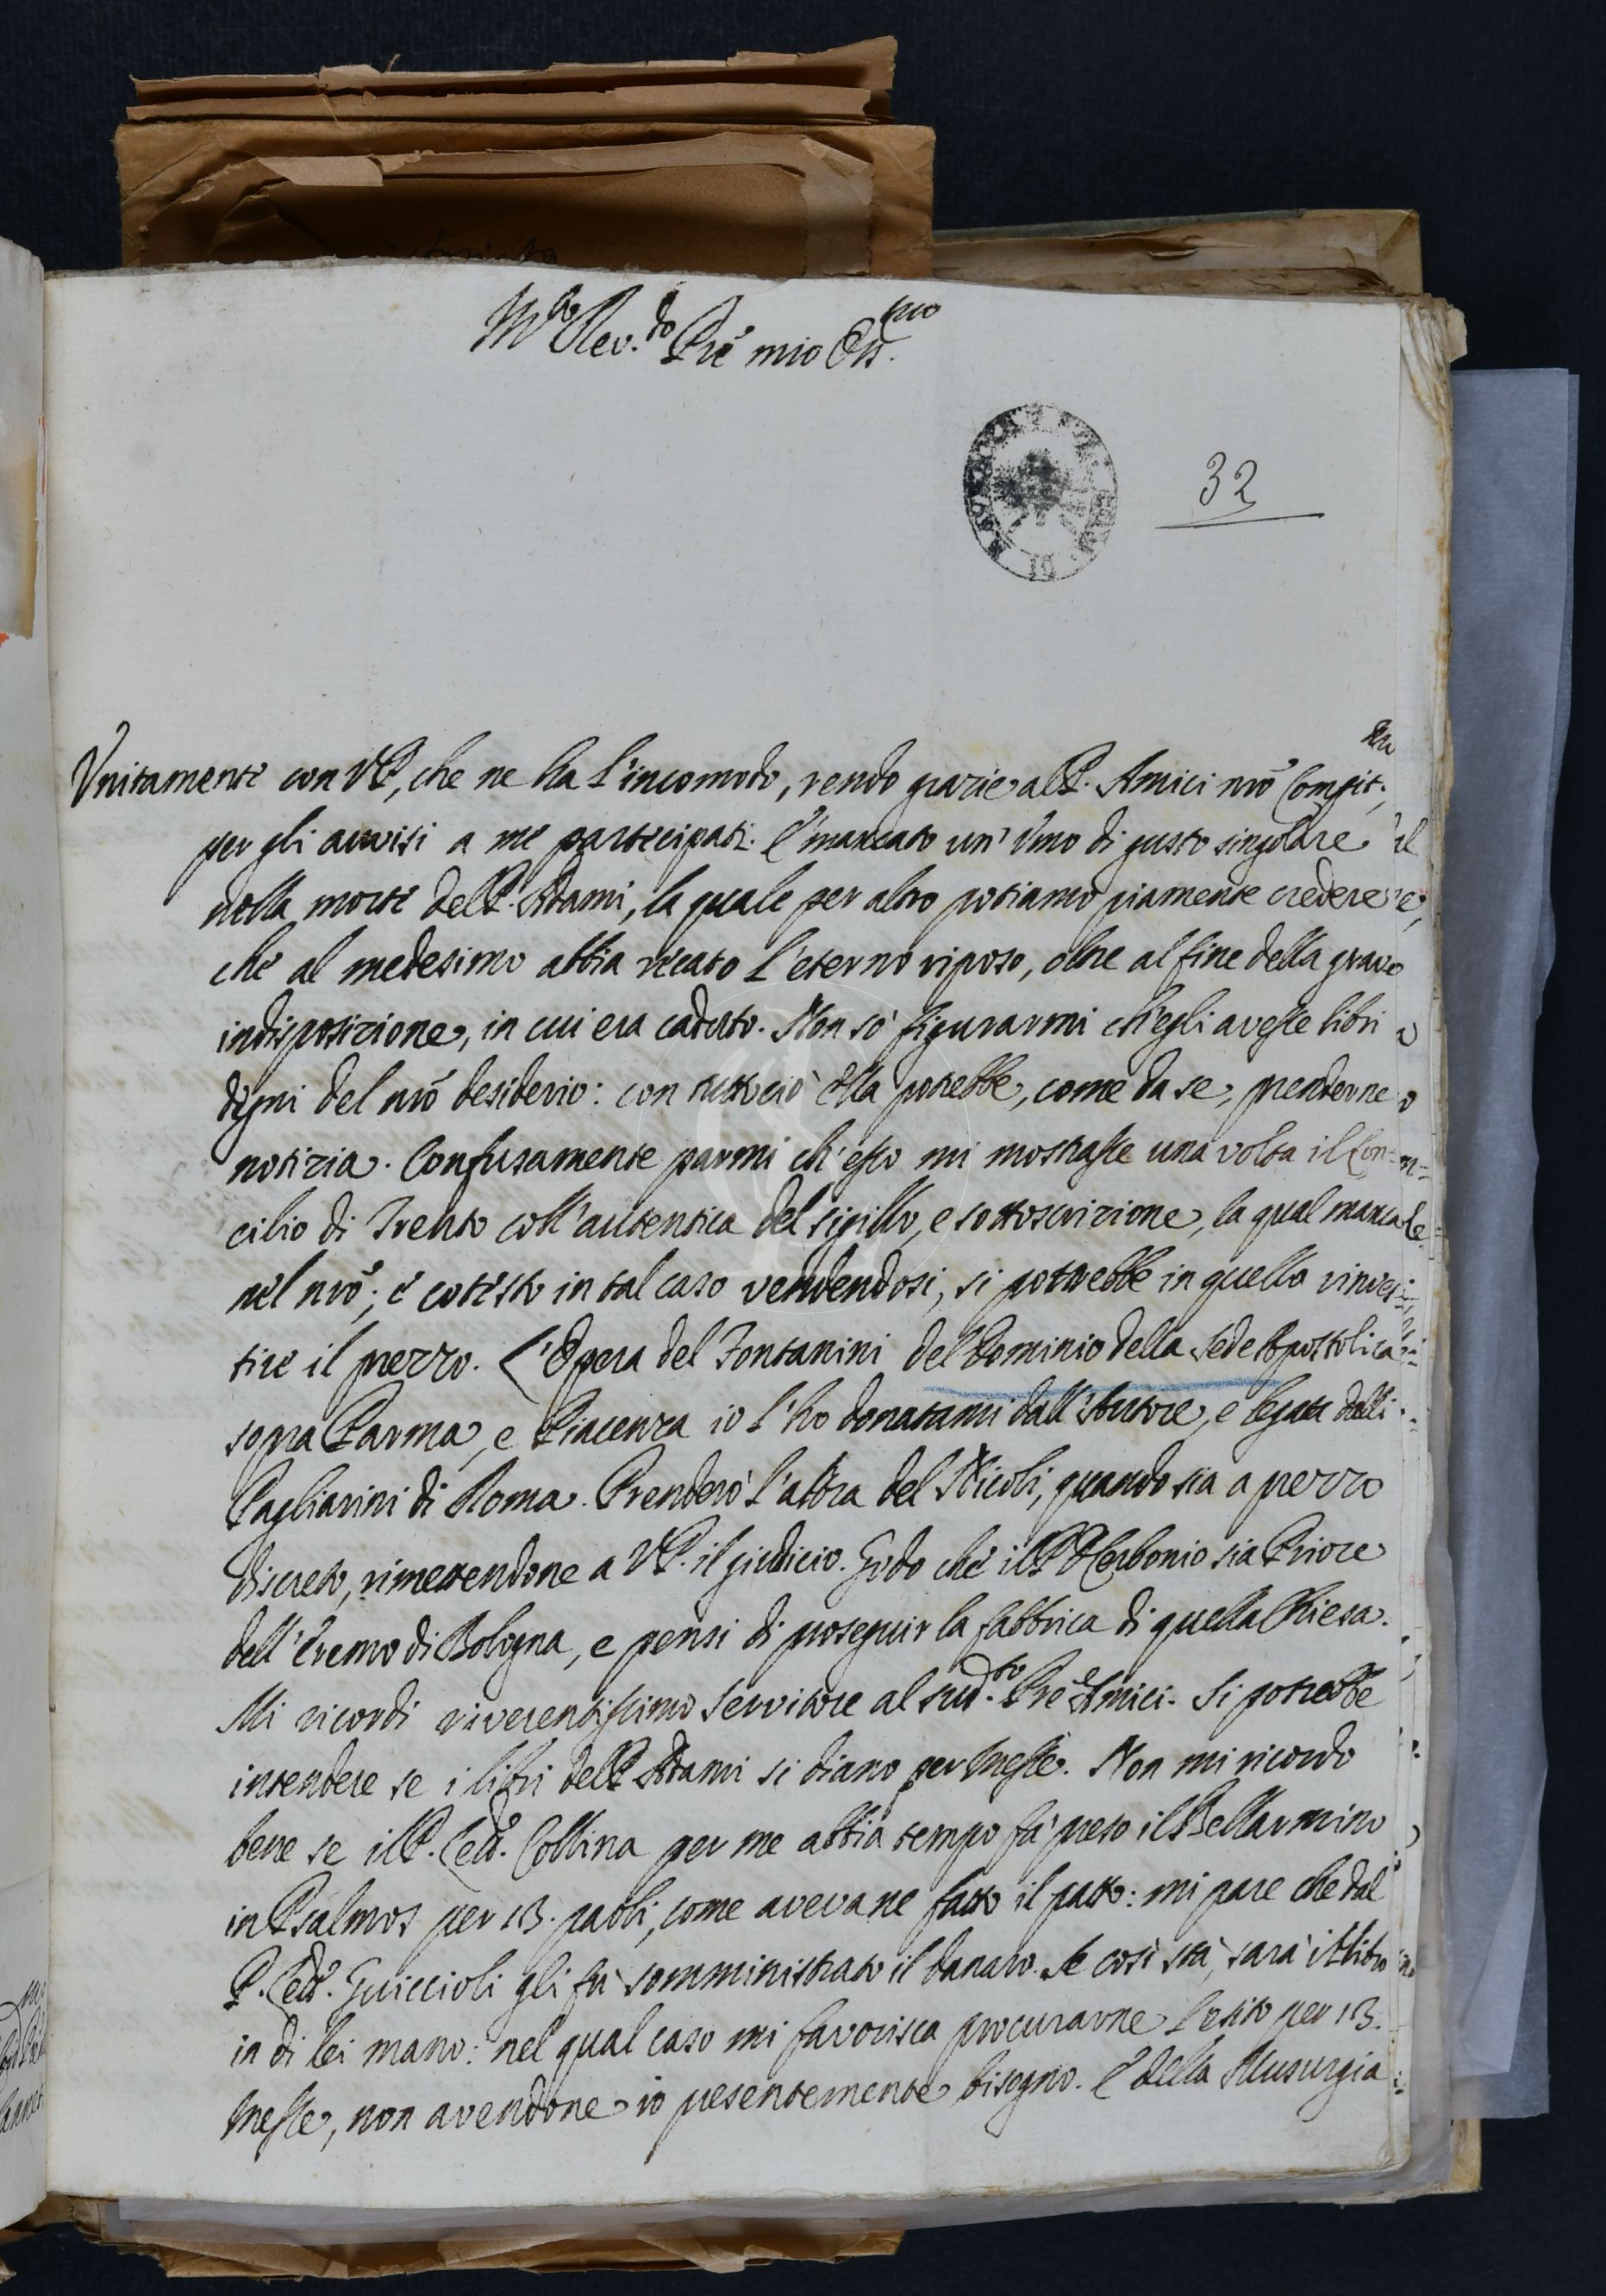 M.to Rev.do Pre mio Oss.mo
32
Unitamente con VP, che ne ha l'incomodo, rendo grazie al P. Amici nro Compit.mo,
per gli avvisi a me partecipati. E' mancato un' Umo di gusto singolare
nella morte del P. Adami, la quale per altro potiamo piamente credere
che al medesimo abbia recato l'eterno riposo, oltre al fine della grave
indisposizione, in cui era caduto. Non sò figurarmi ch'egli avesse libri
digni del nro desiderio: con tuttociò ella potrebbe, come da se, prenderne
notizia. Confusamente parmi ch'esso mi mostrasse una volta il Con-
cilio di Trento coll'autentica del sigillo, e sottoscrizione, la qual manca
nel nro; e cotesto in tal caso vendendosi, si potrebbe in quello rinves-
tire il prezzo. L'Opera del Fontanini del Dominio della Sede Apostolica
sopra Parma, e Piacenza io l'ho donatami dall'Autore, e legata dalli
Pagliarini di Roma. Prenderò l'altra del Nicoli, quando sia a prezzo
discreto, rimettendone a VP. il giudicio. Godo che il P. Cerbonio sia Priore
dell'Eremo di Bologna, e pensi di proseguir la fabbrica di quella Chiesa.
Mi ricordi riverentissimo servitore al sud.to Pre Amici. Si potrebbe
intendere se i libri del P. Adami si diano per Messe. Non mi ricordo
bene se il P. Collina per me abbia tempo fà preso il Bellarmino
in Psalmos per 13. paoli, come avevane fatto il patto: mi pare che dal
P. Guiccioli gli fù somministrato il danaro. Se così stà, sarà il libro
in di lei mano: nel qual caso mi favorisca procurarne l'esito per 13.
Messe, non avendone io presentemente bisogno. E della Musurgia